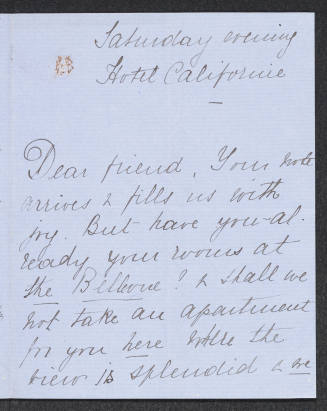 Saturday evening
Hotel Californie
Dear friend, Your note
arrives & fills us with
joy. But have you al-
ready your rooms at
the Bellevue? & shall we
not take an apartment
for you here where the
view is splendid & we